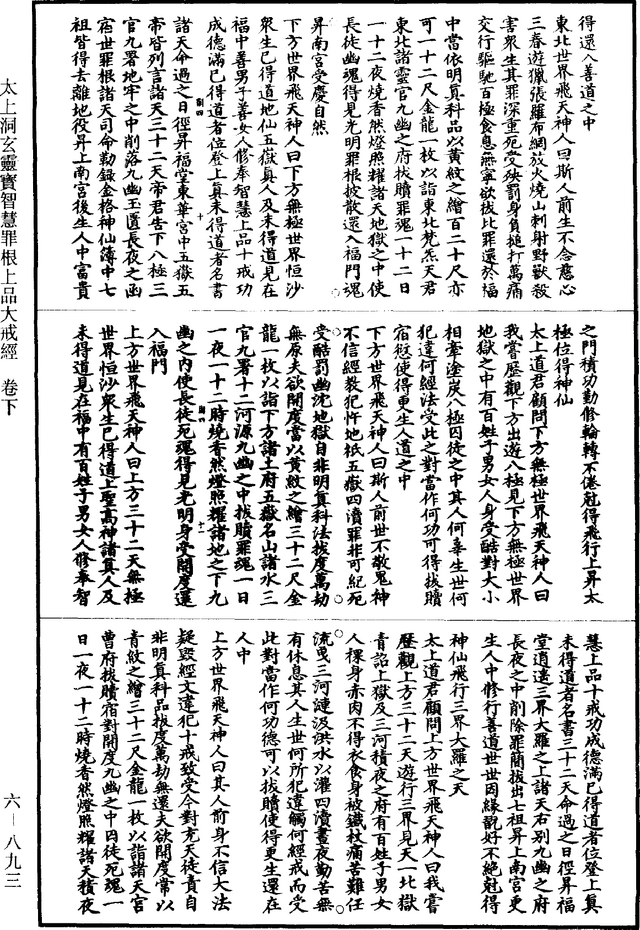 太上洞玄靈寶智慧罪根上品大戒經 卷下
六—八九三
得還入善道之中
東北世界飛天神人曰斯人前生不念慈心
三春遊獵張羅布網放火燒山刺射野獸殺
害衆生其罪深重死受殃罰身負搥打萬痛
交行驅馳百極食息無寧欲拔比罪還於福
中當依明真科品以黃紋之繒百二十尺亦
可一十二尺金龍一枚以詣東北梵炁天君
東北諸靈官九幽之府拔贖罪魂一十二日
一十二夜燒香然燈照耀諸天地獄之中使
長徒幽魂得見光明罪根披散還入福門魂
昇南宮受慶自然
下方世界飛天神人曰下方無極世界恒沙
衆生已得道地仙五嶽真人及未得道見在
福中善男子善女人修奉智慧上品十戒功
成德滿已得道者位登上真未得道者名書
諸天命過之日徑昇福堂東華宮中五嶽五
帝皆列言諸天三十二天帝君告下八極三
官九署地牢之中削落九幽玉匱長夜之函
宿世罪根諸天司命勒錄金格神仙簿中七
祖皆得去離地役昇上南宮後生人中富貴
之門積功勤修輪轉不倦尅得飛行上昇太
極位得神仙
太上道君顧問下方無極世界飛天神人曰
我嘗歷觀下方出遊八極見下方無極世界
地獄之中有百姓子男女人身受酷對大小
相牽塗炭八極囚徒之中其人何辜生世何
犯違何經法受此之對當作何功可得拔贖
宿愆使得更生人道之中
下方世界飛天神人曰斯人前世不敬鬼神
不信經教犯忤地祇五嶽四瀆罪非可紀死
受酷罰幽沈地獄自非明真科法拔度萬劫
無原夫欲開度當以黃紋之繒三十二尺金
龍一枚以詣下方諸土府五嶽名山諸水三
官九署十二河源九幽之中拔贖罪魂一日
一夜一十二時燒香然燈照耀諸地之下九
幽之內使長徒死魂得見光明身受開度還
入福門
上方世界飛天神人曰上方三十二天無極
世界恒沙衆生已得道上聖高神諸真人及
未得道見在福中有百姓子男女人修奉智
慧上品十戒功成德滿已得道者位登上真
未得道者名書三十二天命過之日徑昇福
堂逍遙三界大羅之上諸天右別九幽之府
長夜之中削除罪簡拔出七祖昇上南宮更
生人中修行善道世世因緣覩好不絶尅得
神仙飛行三界大羅之天
太上道君顧問上方世界飛天神人曰我嘗
歷觀上方三十二天遊行三界見天一北獄
青詔上獄及三河積夜之府有百姓子男女
人裸身赤肉不得衣食身被鐵杖痛苦難任
流曳三河漣汲洪水以灌四瀆晝夜勤苦無
有休息其人生世何所犯違觸何經戒而受
此對當作何功德可以拔贖使得更生還在
人中
上方世界飛天神人曰其人前身不信大法
疑毀經文違犯十戒致受今對充天徒責自
非明真科品拔度萬劫無還夫欲開度常以
青紋之繒三十二尺金龍一枚以詣諸天官
曹府拔贖宿對開度九幽之中囚徒死魂一
日一夜一十二時燒香然燈照耀諸天積夜